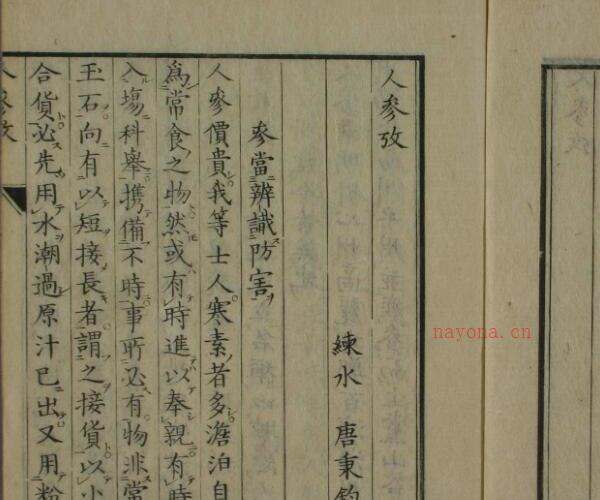 人參攷
練水 唐秉鈞
參當辨識防害
人參價貴我等士人寒素者多澹泊自
爲常食之物然或有時進以奉親有時
入場科舉携備不時事所必有物非常
玉石向有以短接長者謂之接貨以小
合貨必先用水潮過原汁已出又用粉
人參攷
nayona.cn